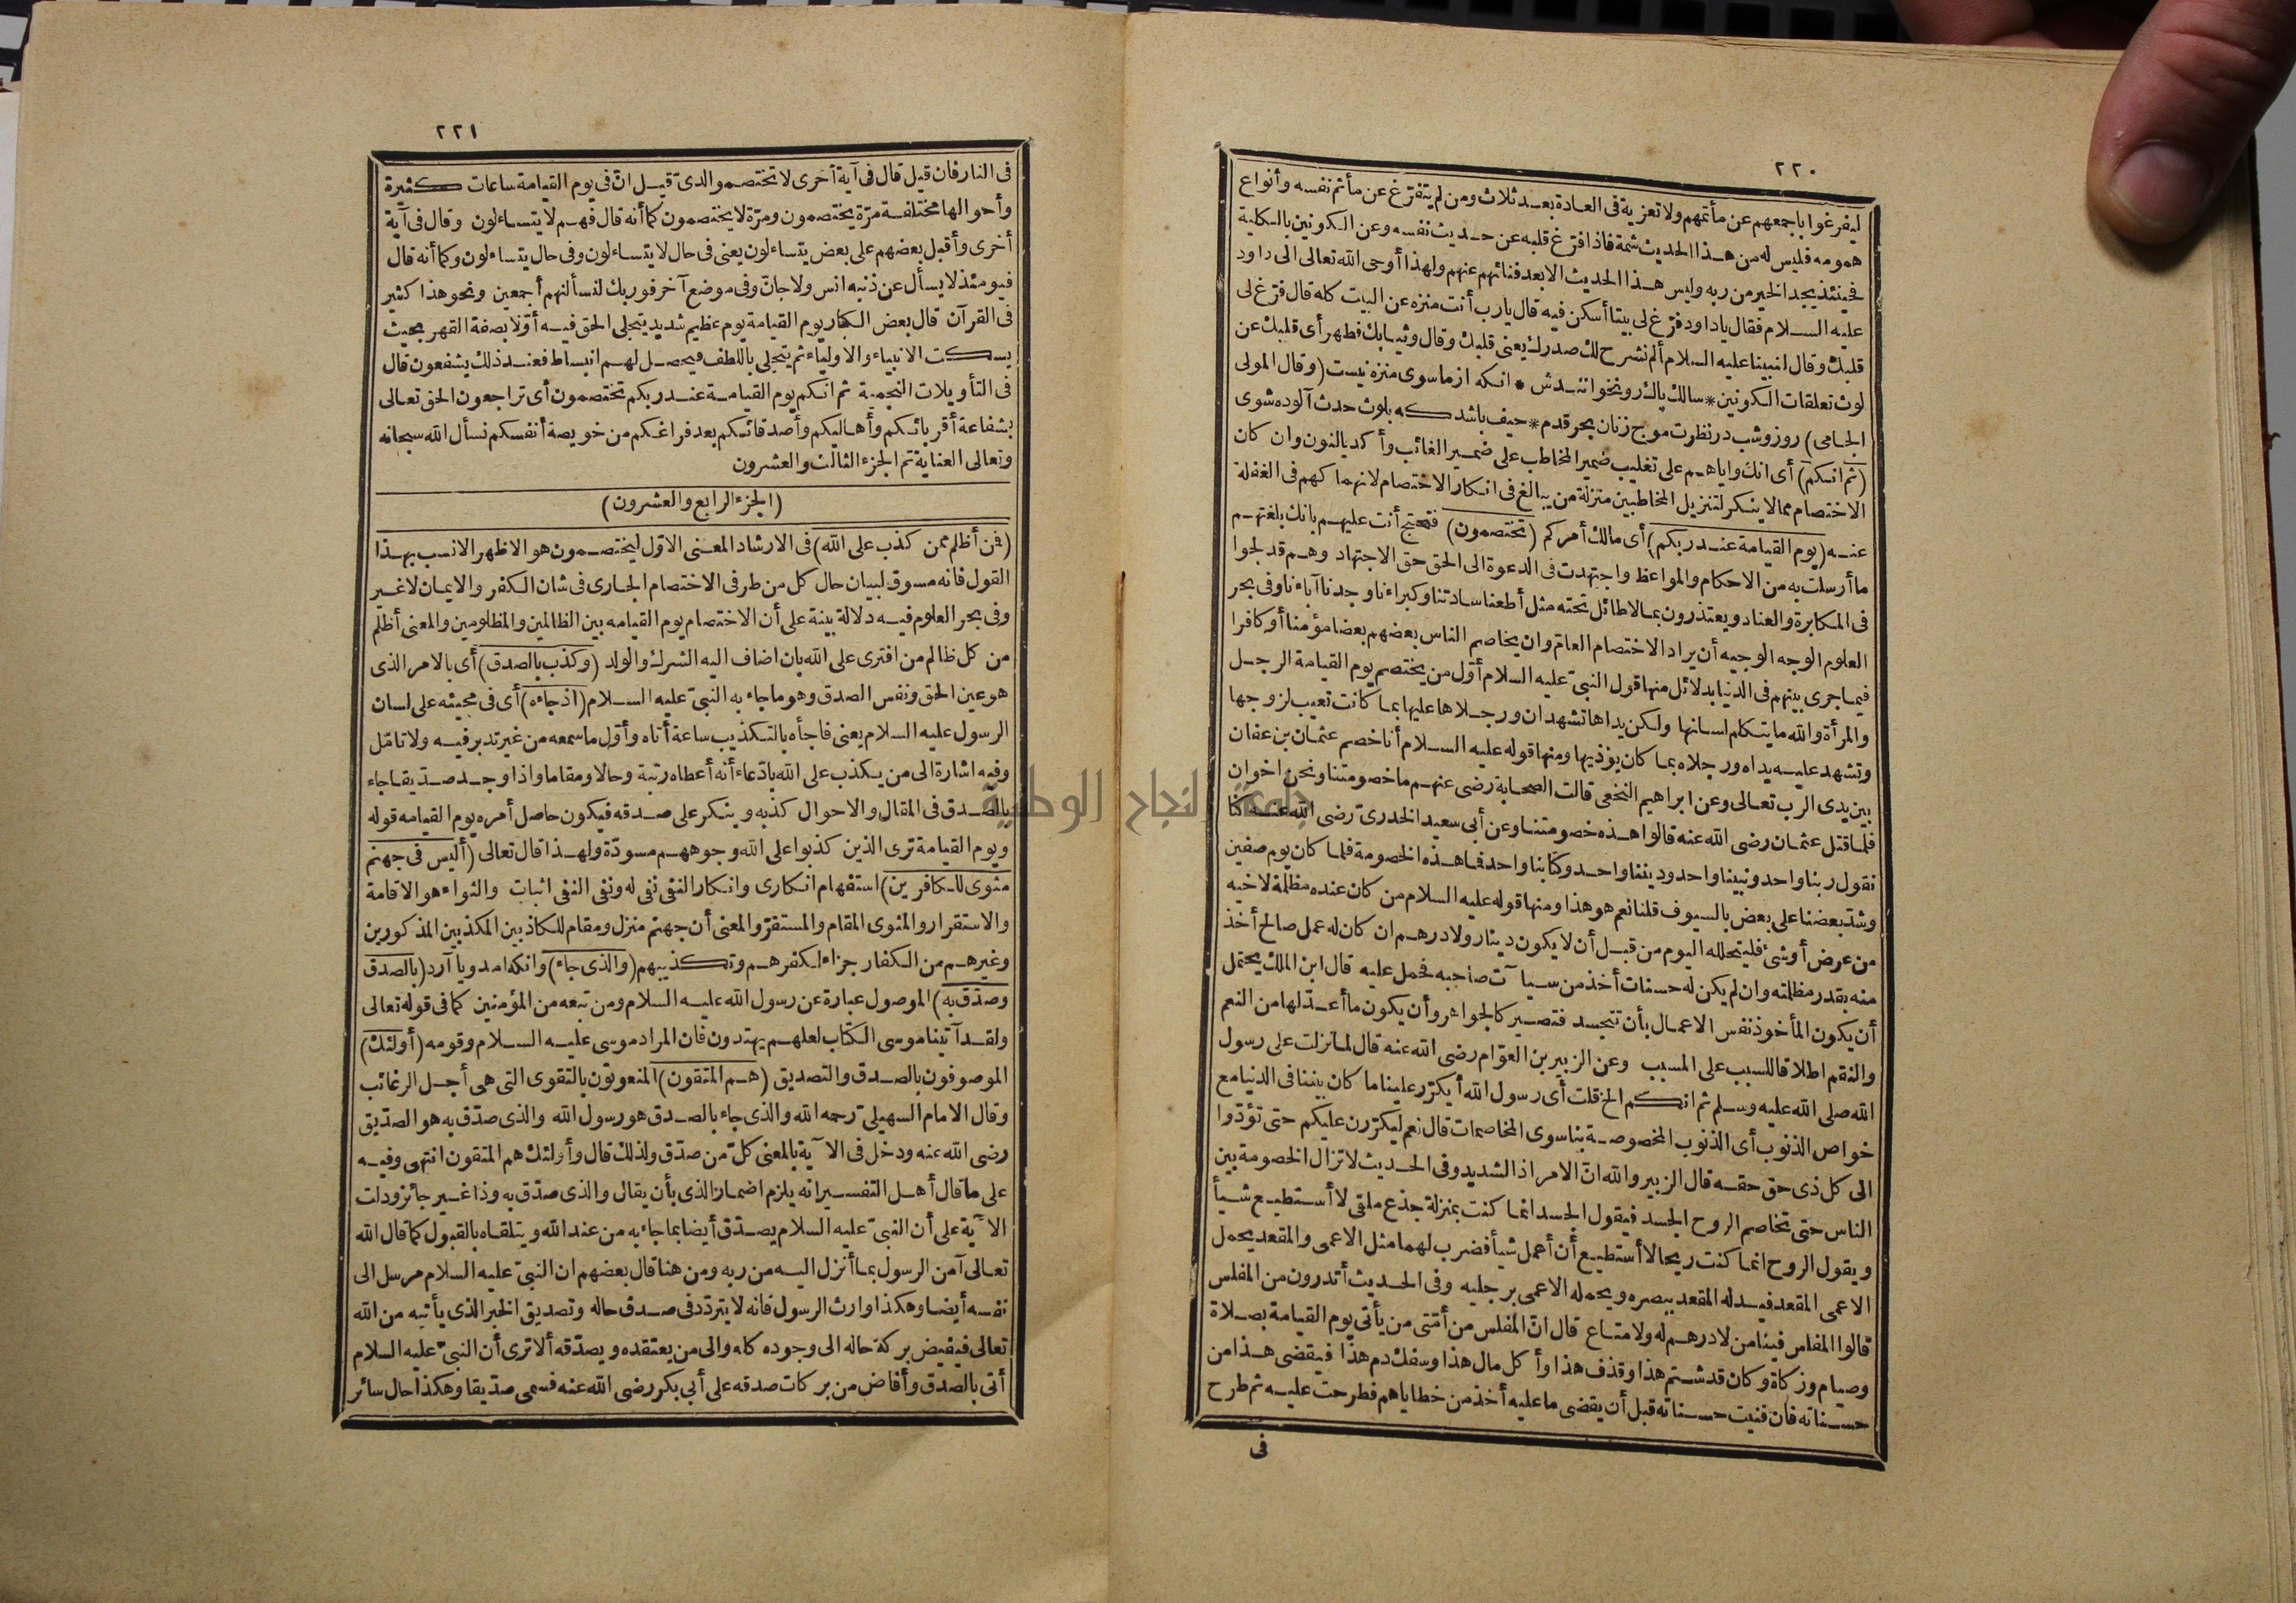 ٢٢٠
ليفرغوا باجمعهم عن مأتمهم ولا تعزية فى العادة بعد ثلاث ومن لم يتفرّغ عن مأتم نفسه وأنواع
همومه فليس له من هذا الحديث شمة فاذا فرّغ قلبه عن حديث نفسه وعن الكونين بالكلية
فحينئذ يجد الخبر من ربه وليس هذا الحديث الا بعد فنائهم عنهم ولهذا أوحى الله تعالى الى داود
عليه السلام فقال يا داود فرّغ لى بيتا أسكن فيه قال يا رب أنت منزه عن البيت كله قال فرّغ لى
قلبك وقال لنبينا عليه السلام ألم نشرح لك صدرك يعنى قلبك وقال وثيابك فطهر أى قلبك عن
لوث تعلقات الكونين * سالك پاك رو نخوانندش * انكه از ماسوى منزه نيست (وقال المولى
الجامى) روز وشب در نظرت موج زنان بحر قدم * حيف باشد كه بلوث حدث آلوده شوى
(ثم انكم) أى انك واياهم على تغليب ضمير المخاطب على ضمير الغائب وأكد بالنون وان كان
الاختصام مما لا ينكر لتنزيل المخاطبين منزلة من يبالغ فى انكار الاختصام لانهماكهم فى الغفلة
عنه (يوم القيامة عند ربكم) أى مالك أمركم (تختصمون) فتحتج أنت عليهم بانك بلغتهم
ما أرسلت به من الاحكام والمواعظ واجتهدت فى الدعوة الى الحق حق الاجتهاد وهم قد لجوا
فى المكابرة والعناد ويعتذرون بما لا طائل تحته مثل أطعنا سادتنا وكبراءنا وجدنا آباءنا وفى بحر
العلوم الوجه الوجيه أن يراد الاختصام العام وان يخاصم الناس بعضهم بعضا مؤمنا أو كافرا
فيما جرى بينهم فى الدنيا بدلائل منها قول النبىّ عليه السلام أوّل من يختصم يوم القيامة الرجل
والمرأة والله ما يتكلم لسانها ولكن يداها تشهدان ورجلاها عليها بما كانت تعيب لزوجها
وتشهد عليه يداه ورجلاه بما كان يؤذيها ومنها قوله عليه السلام أنا خصم عثمان بن عفان
بين يدى الرب تعالى وعن ابراهيم النخعى قالت الصحابة رضى عنهم ما خصومتنا ونحن اخوان
فلما قتل عثمان رضى الله عنه قالوا هذه خصومتنا وعن أبى سعيد الخدرىّ رضى الله عنه كنا
نقول ربنا واحد ونبينا واحد وديننا واحد وكتابنا واحد فما هذه الخصومة فلما كان يوم صفين
وشدّ بعضنا على بعض بالسيوف قلنا نعم هو هذا ومنها قوله عليه السلام من كان عنده مظلمة لاخيه
من عرض أو شئ فليتحلله اليوم من قبل أن لا يكون دينار ولا درهم ان كان له عمل صالح أخذ
منه بقدر مظلمته وان لم يكن له حسنات أخذ من سيآت صاحبه فحمل عليه قال ابن الملك يحتمل
أن يكون المأخوذ نفس الاعمال بأن تتجسد فتصير كالجواهر وأن يكون ما أعدّ لها من النعم
والنقم اطلاقا للسبب على المسبب وعن الزبير بن العوّام رضى الله عنه قال لما نزلت على رسول
الله صلى الله عليه وسلم ثم انكم الخ قلت أى رسول الله أيكرّر علينا ما كان بيننا فى الدنيا مع
خواص الذنوب أى الذنوب المخصوصة بنا سوى المخاصمات قال نعم ليكرّرن عليكم حتى تؤدّوا
الى كل ذى حق حقه قال الزبير والله انّ الامر اذا لشديد وفى الحديث لا تزال الخصومة بين
الناس حتى تخاصم الروح الجسد فيقول الجسد انما كنت بمنزلة جذع ملقى لا أستطيع شيأ
ويقول الروح انما كنت ريحا لا أستطيع أن أعمل شيأ فضرب لهما مثل الاعمى والمقعد يحمل
الاعمى المقعد فيدله المقعد ببصره ويحمله الاعمى برجليه وفى الحديث أتدرون من المفلس
قالوا المفلس فينا من لا درهم له ولا متاع قال انّ المفلس من أمّتى من يأتى يوم القيامة بصلاة
وصيام وزكاة وكان قد شتم هذا وقذف هذا وأكل مال هذا وسفك دم هذا فيقضى هذا من
حسناته فان فنيت حسناته قبل أن يقضى ما عليه أخذ من خطاياهم فطرحت عليه ثم طرح
فى
٢٢١
فى النار فان قيل قال فى آية أخرى لا تختصموا لدىّ قيل انّ فى يوم القيامة ساعات كثيرة
وأحوالها مختلفة مرّة يختصمون ومرّة لا يختصمون كما أنه قال فهم لا يتساءلون وقال فى آية
أخرى وأقبل بعضهم على بعض يتساءلون يعنى فى حال لا يتساءلون وفى حال يتساءلون وكما أنه قال
فيومئذ لا يسأل عن ذنبه انس ولا جانّ وفى موضع آخر فوربك لنسألنهم أجمعين ونحو هذا كثير
فى القرآن قال بعض الكبار يوم القيامة يوم عظيم شديد يتجلى الحق فيه أوّلا بصفة القهر بحيث
يسكت الانبياء والاولياء ثم يتجلى باللطف فيحصل لهم انبساط فعند ذلك يشفعون قال
فى التأويلات النجمية ثم انكم يوم القيامة عند ربكم تختصمون أى تراجعون الحق تعالى
بشفاعة أقربائكم وأهاليكم وأصدقائكم بعد فراغكم من خويصة أنفسكم نسأل الله سبحانه
وتعالى العناية تم الجزء الثالث والعشرون
(الجزء الرابع والعشرون)
(فمن أظلم ممن كذب على الله) فى الارشاد المعنى الاوّل ليختصمون هو الاظهر الانسب بهذا
القول فانه مسوق لبيان حال كل من طرفى الاختصام الجارى فى شان الكفر والايمان لا غير
وفى بحر العلوم فيه دلالة بينة على أن الاختصام يوم القيامه بين الظالمين والمظلومين والمعنى أظلم
من كل ظالم من افترى على الله بان اضاف اليه الشرك والولد (وكذب بالصدق) أى بالامر الذى
هو عين الحق ونفس الصدق وهو ما جاء به النبىّ عليه السلام (اذ جاءه) أى فى مجيئه على لسان
الرسول عليه السلام يعنى فاجأه بالتكذيب ساعة أتاه وأوّل ما سمعه من غير تدبر فيه ولا تامّل
وفيه اشارة الى من يكذب على الله بادّعاء أنه أعطاه رتبة وحالا ومقاما واذا وجد صدّيقا جاء
بالصدق فى المقال والاحوال كذبه وينكر على صدقه فيكون حاصل أمره يوم القيامه قوله
ويوم القيامة ترى الذين كذبوا على الله وجوههم مسودّة ولهذا قال تعالى (أليس فى جهنم
مثوى للكافرين) استفهام انكارى وانكار النفى نفى له ونفى النفى اثبات والثواء هو الاقامة
والاستقرار والمثوى المقام والمستقرّ والمعنى أن جهنم منزل ومقام للكاذبين المكذبين المذكورين
وغيرهم من الكفار جزاء لكفرهم وتكذيبهم (والذى جاء) وانكه امد ويا آرد (بالصدق
وصدّق به) الموصول عبارة عن رسول الله عليه السلام ومن تبعه من المؤمنين كما فى قوله تعالى
ولقد آتينا موسى الكتاب لعلهم يهتدون فان المراد موسى عليه السلام وقومه (أولئك)
الموصوفون بالصدق والتصديق (هم المتقون) المنعوتون بالتقوى التى هى أجل الرغائب
وقال الامام السهيلىّ رحمه الله والذى جاء بالصدق هو رسول الله والذى صدّق به هو الصدّيق
رضى الله عنه ودخل فى الآية بالمعنى كلّ من صدّق ولذلك قال وأولئك هم المتقون انتهى وفيه
على ما قال أهل التفسير انه يلزم اضمار الذى بأن يقال والذى صدّق به وذا غير جائز ودلت
الآية على أن النبىّ عليه السلام يصدّق أيضا بما جاء به من عند الله ويتلقاه بالقبول كما قال الله
تعالى آمن الرسول بما أنزل اليه من ربه ومن هنا قال بعضهم ان النبىّ عليه السلام مرسل الى
نفسه أيضا وهكذا وارث الرسول فانه لا يتردّد فى صدق حاله وتصديق الخبر الذى يأتيه من الله
تعالى فيفيض بركة حاله الى وجوده كله والى من يعتقده ويصدّقه ألا ترى أن النبىّ عليه السلام
أتى بالصدق وأفاض من بركات صدقه على أبى بكر رضى الله عنه فسمى صدّيقا وهكذا حال سائر
جامعة النجاح الوطنية